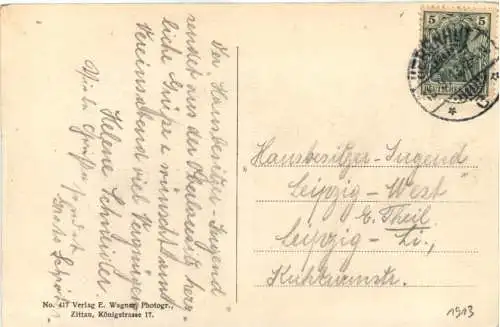 Der "Hausbesitzer-Jugend"
sendet aus der Oberlausitz herz-
liche Grüße u. wünscht zum
Vereinsabend viel Vergnügen
Helene Schneider
Viele Grüße sendet
"Hausbesitzer-Jugend"
Leipzig-West
E. Theil
Leipzig-Li.,
Kuhturmstr.
1913
No. 417 Verlag E. Wagner, Photogr.,
Zittau, Königstrasse 17.
5
5